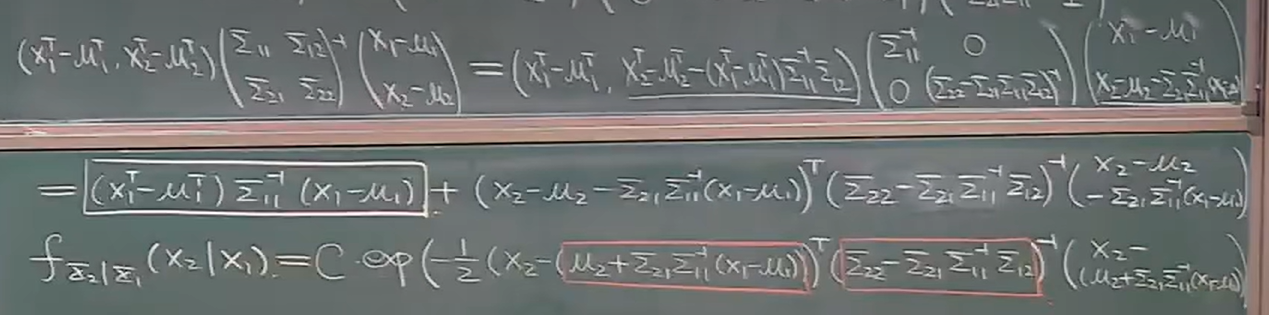 (x₁ᵀ-μ₁ᵀ, x₂ᵀ-μ₂ᵀ) (Σ₁₁ Σ₁₂ ; Σ₂₁ Σ₂₂)⁻¹ (x₁-μ₁ ; x₂-μ₂) = (x₁ᵀ-μ₁ᵀ, x₂ᵀ-μ₂ᵀ-(x₁ᵀ-μ₁ᵀ)Σ₁₁⁻¹Σ₁₂) (Σ₁₁⁻¹ 0 ; 0 (Σ₂₂-Σ₂₁Σ₁₁⁻¹Σ₁₂)⁻¹) (x₁-μ₁ ; x₂-μ₂-Σ₂₁Σ₁₁⁻¹(x₁-μ₁))
= (x₁ᵀ-μ₁ᵀ) Σ₁₁⁻¹ (x₁-μ₁) + (x₂-μ₂-Σ₂₁Σ₁₁⁻¹(x₁-μ₁))ᵀ (Σ₂₂-Σ₂₁Σ₁₁⁻¹Σ₁₂)⁻¹ (x₂-μ₂ -Σ₂₁Σ₁₁⁻¹(x₁-μ₁))
f_{X₂|X₁}(x₂|x₁) = C · exp(-½ (x₂-(μ₂+Σ₂₁Σ₁₁⁻¹(x₁-μ₁))ᵀ (Σ₂₂-Σ₂₁Σ₁₁⁻¹Σ₁₂)⁻¹ (x₂- (μ₂+Σ₂₁Σ₁₁⁻¹(x₁-μ₁))